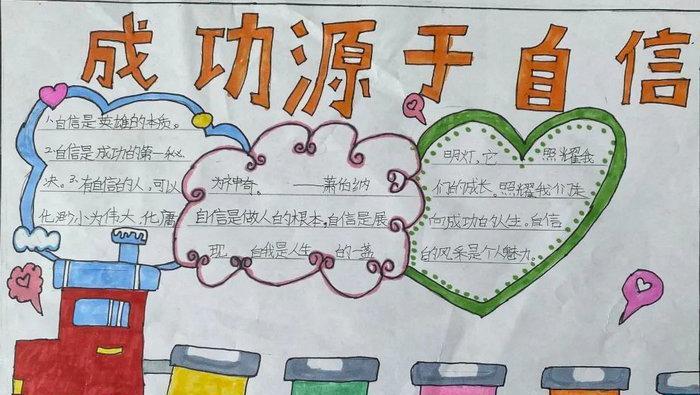 成功源于自信
1.自信是英雄的本质。
2.自信是成功的第一秘
决。3.有自信的人,可以
化渺小为伟大,化庸
为神奇。——萧伯纳
自信是做人的根本,自信是展
现 自我是人生 的一盏
明灯,它 照耀我
们的成长。照耀我们走
向成功的人生。自信
的风采是个人魅力